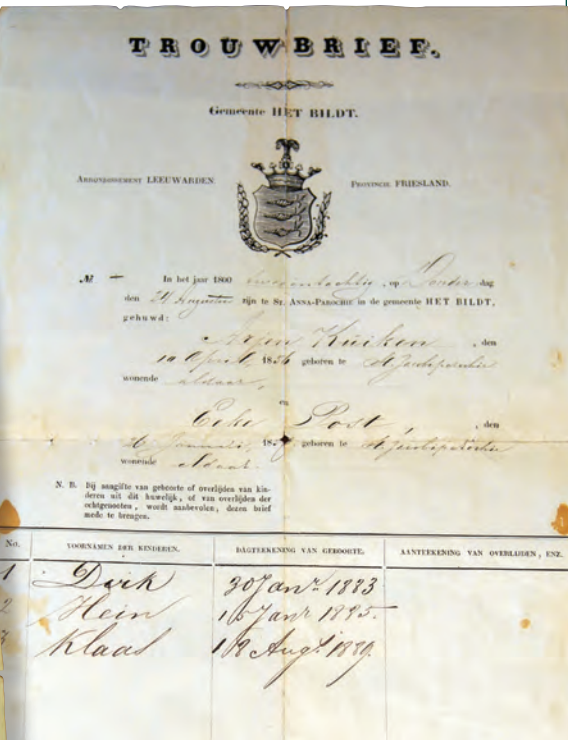 TROUWBRIEF.
Gemeente HET BILDT.
ARRONDISSEMENT LEEUWARDEN. PROVINCIE FRIESLAND.
No — In het jaar 1800 tweeentachtig, op Donderdag
den 24 Augustus zijn te ST. ANNA-PAROCHIE in de gemeente HET BILDT,
gehuwd:
Arjen Kuiken, den
10 April, 1856 geboren te St Jacobparochie
wonende aldaar,
en
Post, den
Januari, 18 geboren te St Jacobparochie
wonende aldaar.
N. B. Bij aangifte van geboorte of overlijden van kin-
deren uit dit huwelijk, of van overlijden der
echtgenooten, wordt aanbevolen, dezen brief
mede te brengen.
No. VOORNAMEN DER KINDEREN. DAGTEEKENING VAN GEBOORTE. AANTEEKENING VAN OVERLIJDEN, ENZ.
1 Dirk 30 Janr 1883
2 Hein Janr 1885.
3 Klaas 18 Augt 1889.